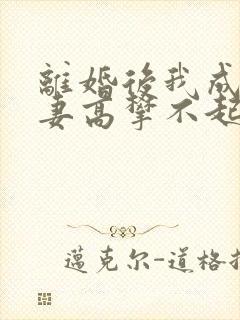 離婚後我成
妻高攀不起
邁克尔-道格拉